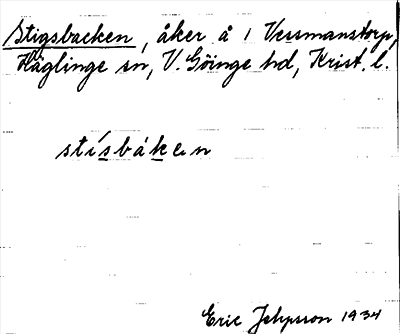 Stigsbacken, åker å 1 Vessmanstorp,
Häglinge sn, V. Göinge hd, Krist. l.
stísbáken
Eric Jehpsson 1934